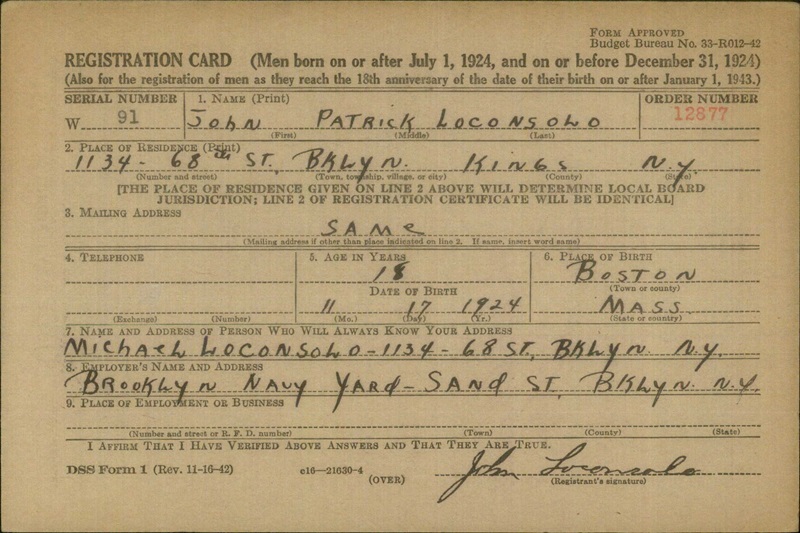 FORM APPROVED
Budget Bureau No. 33-R012-42
REGISTRATION CARD (Men born on or after July 1, 1924, and on or before December 31, 1924)
(Also for the registration of men as they reach the 18th anniversary of the date of their birth on or after January 1, 1943.)
SERIAL NUMBER 1. NAME (Print) ORDER NUMBER
W 91 JOHN PATRICK LOCONSOLO 12877
(First) (Middle) (Last)
2. PLACE OF RESIDENCE (Print)
1134 - 68th ST. BKLYN. KINGS N.Y.
(Number and street) (Town, township, village, or city) (County) (State)
[THE PLACE OF RESIDENCE GIVEN ON LINE 2 ABOVE WILL DETERMINE LOCAL BOARD
JURISDICTION; LINE 2 OF REGISTRATION CERTIFICATE WILL BE IDENTICAL]
3. MAILING ADDRESS
SAME
(Mailing address if other than place indicated on line 2. If same, insert word same)
4. TELEPHONE 5. AGE IN YEARS 6. PLACE OF BIRTH
18 BOSTON
(Town or county)
DATE OF BIRTH
11 17 1924 MASS.
(Exchange) (Number) (Mo.) (Day) (Yr.) (State or country)
7. NAME AND ADDRESS OF PERSON WHO WILL ALWAYS KNOW YOUR ADDRESS
MICHAEL LOCONSOLO - 1134 - 68 ST. BKLYN. N.Y.
8. EMPLOYER'S NAME AND ADDRESS
BROOKLYN NAVY YARD - SAND ST. BKLYN. N.Y.
9. PLACE OF EMPLOYMENT OR BUSINESS
(Number and street or R. F. D. number) (Town) (County) (State)
I AFFIRM THAT I HAVE VERIFIED ABOVE ANSWERS AND THAT THEY ARE TRUE.
DSS Form 1 (Rev. 11-16-42) c16—21630-4
(OVER)
John Loconsolo
(Registrant's signature)